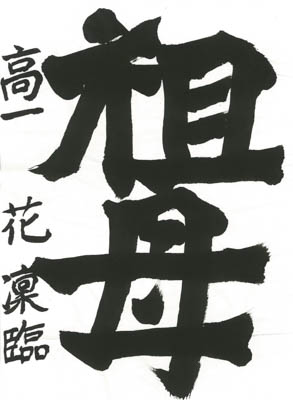 祖母
高一 花凜臨